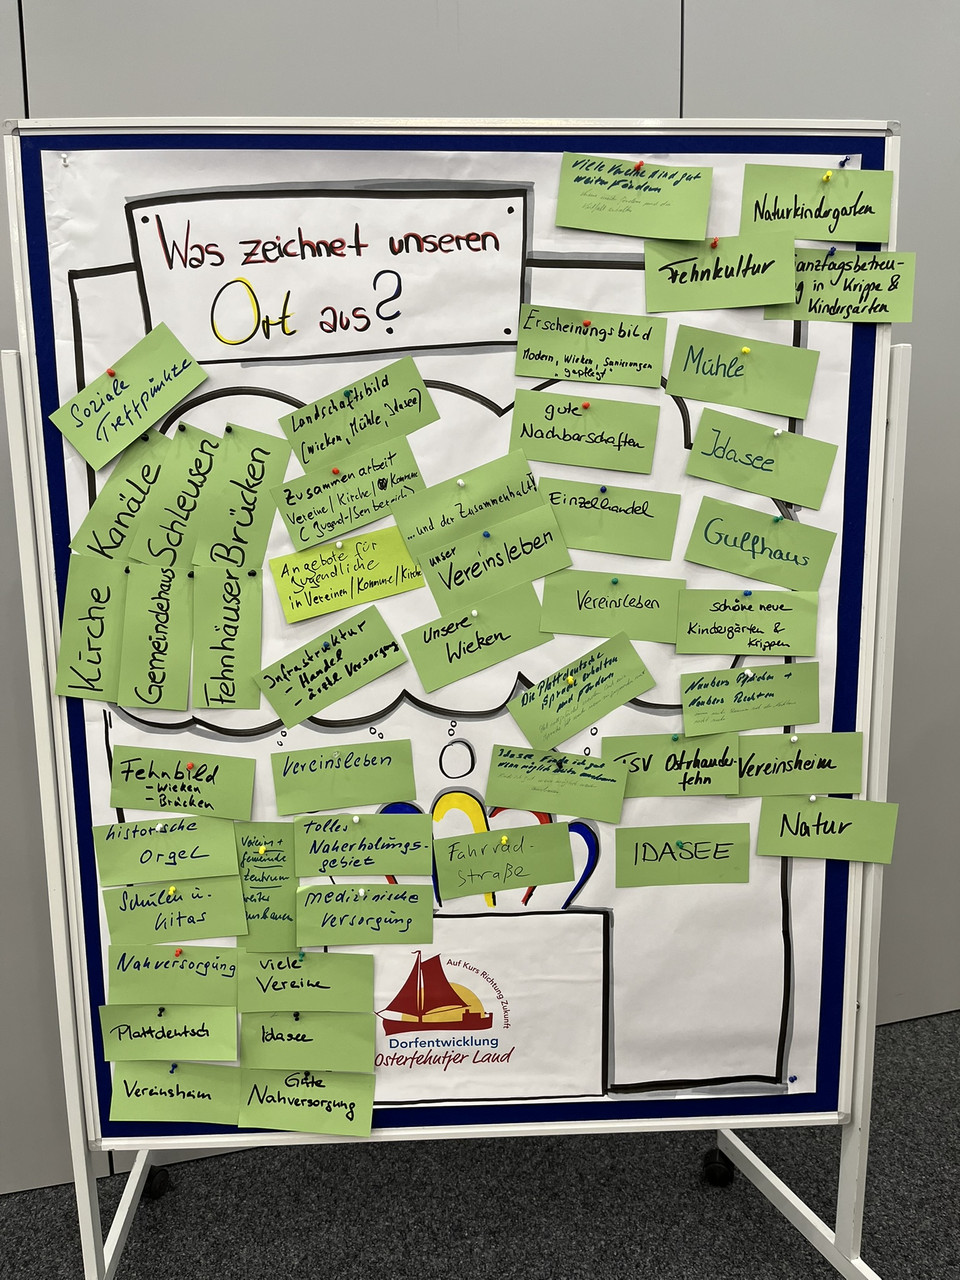 Was zeichnet unseren
Ort aus?
viele Vereine sind gut
weiter fördern
Naturkindergarten
Fehnkultur
anztagsbetreu-
g in Krippe &
Kindergärten
Erscheinungsbild
Modern, Wieken, Sanierungen
"gepflegt"
Mühle
Soziale
Treffpunkte
Landschaftsbild
(Wieken, Mühle, Idasee)
gute
Nachbarschaften
Idasee
Kanäle
Schleusen
Brücken
Zusammenarbeit
Vereine/Kirche/Kommune
(Jugend-/Senbereich)
...und der Zusammenhalt!
Einzelhandel
Gulfhaus
Angebote für
Jugendliche
in Vereinen/Kommune/Kirche
unser
Vereinsleben
Vereinsleben
schöne neue
Kindergärten &
Krippen
Kirche
Gemeindehaus
Fehnhäuser
Infrastruktur
- Handel
- ärztl Versorgung
Unsere
Wieken
Die Plattdeutsche
Sprache erhalten
und fördern
Fehnbild
- Wieken
- Brücken
Vereinsleben
Idasee
TSV Ostrhauder-
fehn
Vereinsheim
historische
Orgel
Vereins+
gemeinde
zentrum
weiter
ausbauen
tolles
Naherholungs-
gebiet
Fahrrad-
straße
IDASEE
Natur
Schulen u.
Kitas
medizinische
Versorgung
Nahversorgung
viele
Vereine
Plattdeutsch
Idasee
Vereinsheim
Gute
Nahversorgung
Auf Kurs Richtung Zukunft
Dorfentwicklung
Osterfehntjer Land